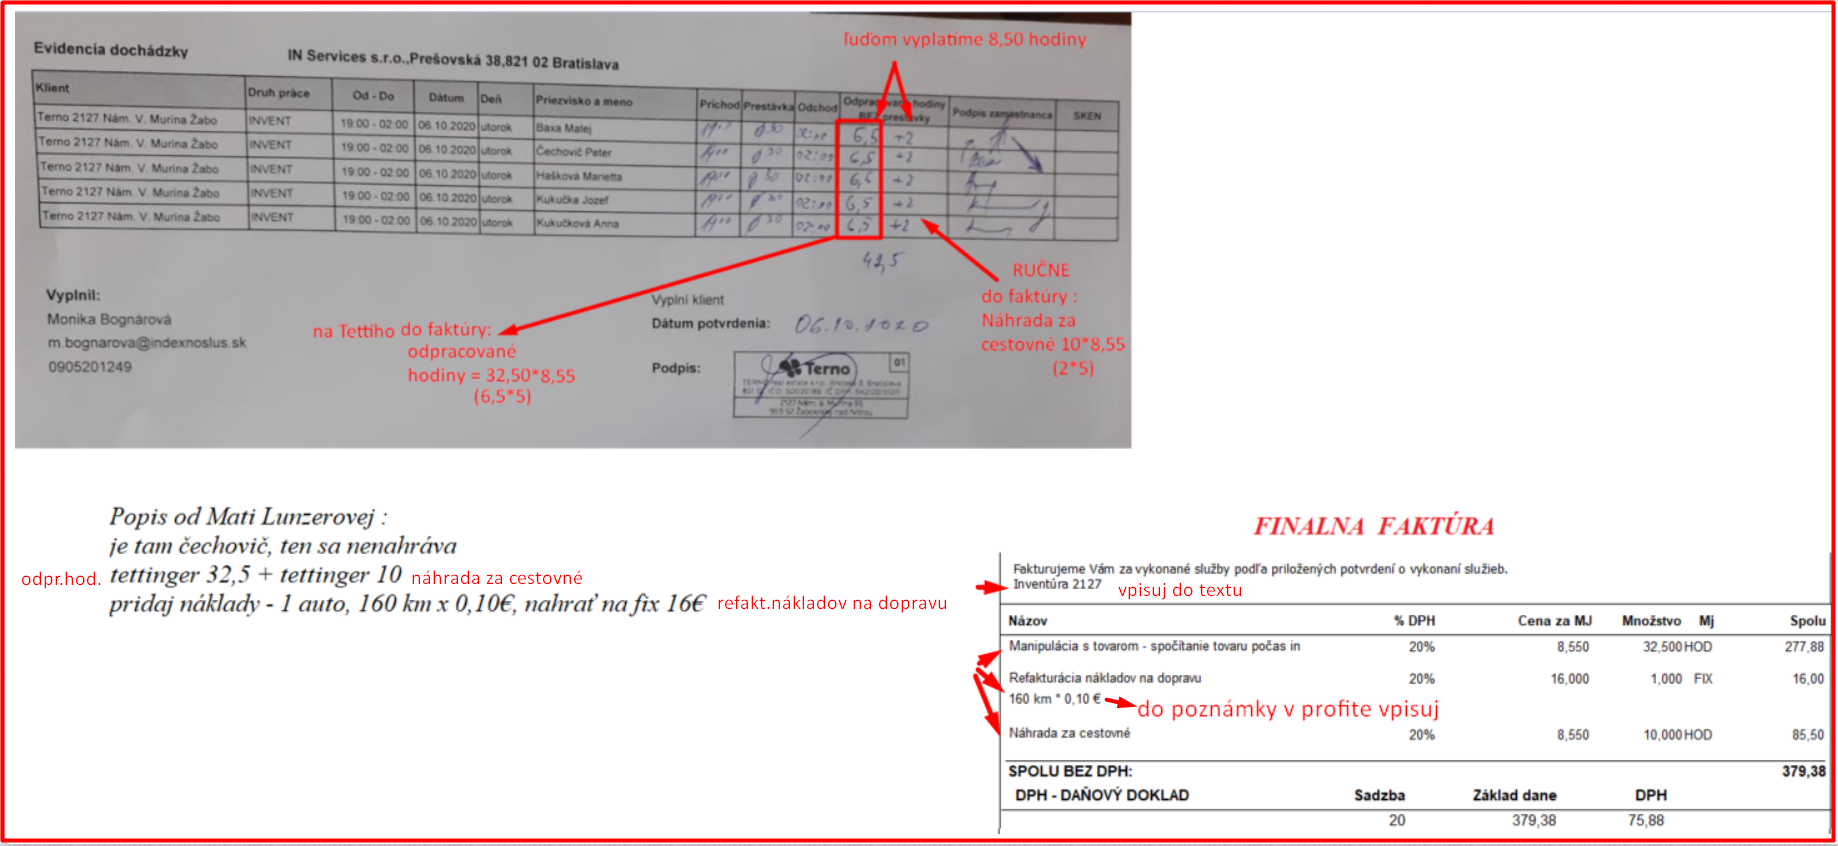 ľuďom vyplatíme 8,50 hodiny
Evidencia dochádzky
IN Services s.r.o.,Prešovská 38,821 02 Bratislava
Klient Druh práce Od - Do Dátum Deň Priezvisko a meno Príchod Prestávka Odchod Odpracované hodiny BEZ prestávky Podpis zamestnanca SKEN
Terno 2127 Nám. V. Murina Žabo INVENT 19:00 - 02:00 06.10.2020 utorok Baxa Matej 1900 030 02:00 6,5 +2
Terno 2127 Nám. V. Murina Žabo INVENT 19:00 - 02:00 06.10.2020 utorok Čechovič Peter 1900 030 02:00 6,5 +2
Terno 2127 Nám. V. Murina Žabo INVENT 19:00 - 02:00 06.10.2020 utorok Hašková Marietta 1900 030 02:00 6,5 +2
Terno 2127 Nám. V. Murina Žabo INVENT 19:00 - 02:00 06.10.2020 utorok Kukučka Jozef 1900 030 02:00 6,5 +2
Terno 2127 Nám. V. Murina Žabo INVENT 19:00 - 02:00 06.10.2020 utorok Kukučková Anna 1900 030 02:00 6,5 +2
42,5
Vyplnil:
Monika Bognárová
m.bognarova@indexnoslus.sk
0905201249
na Tettiho do faktúry:
odpracované
hodiny = 32,50*8,55
(6,5*5)
Vyplní klient
Dátum potvrdenia: 06.10.2020
Podpis:
Terno 01
2127 Nám. V. Murina
RUČNE
do faktúry :
Náhrada za
cestovné 10*8,55
(2*5)
Popis od Mati Lunzerovej :
je tam čechovič, ten sa nenahráva
odpr.hod. tettinger 32,5 + tettinger 10 náhrada za cestovné
pridaj náklady - 1 auto, 160 km x 0,10€, nahrať na fix 16€ refakt.nákladov na dopravu
FINALNA FAKTÚRA
Fakturujeme Vám za vykonané služby podľa priložených potvrdení o vykonaní služieb.
Inventúra 2127 vpisuj do textu
Názov % DPH Cena za MJ Množstvo Mj Spolu
Manipulácia s tovarom - spočítanie tovaru počas in 20% 8,550 32,500 HOD 277,88
Refakturácia nákladov na dopravu 20% 16,000 1,000 FIX 16,00
160 km * 0,10 € do poznámky v profite vpisuj
Náhrada za cestovné 20% 8,550 10,000 HOD 85,50
SPOLU BEZ DPH: 379,38
DPH - DAŇOVÝ DOKLAD Sadzba Základ dane DPH
20 379,38 75,88